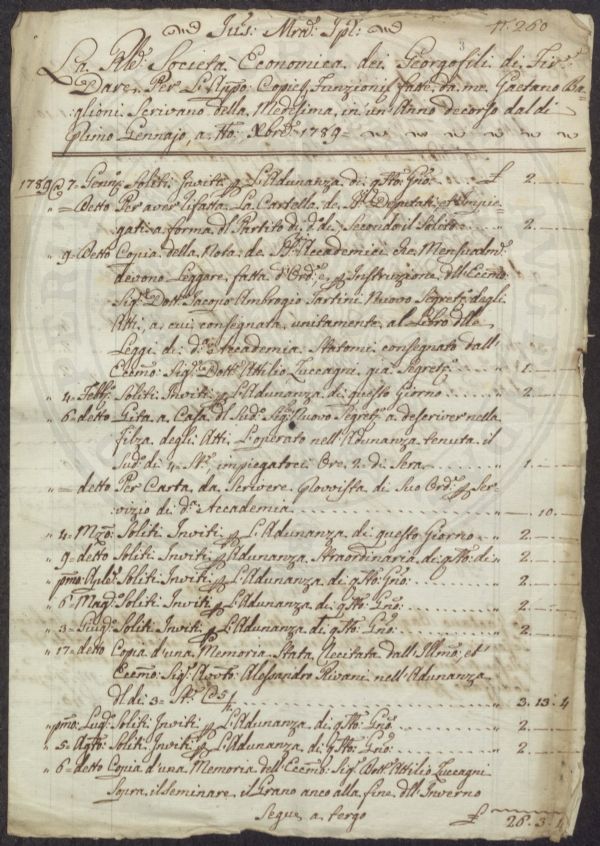 Jus: Mrd: Ipl:
N. 260
La Rle Società Economica dei Georgofili di Firze
Dare Per L'Appo: Copie, e Funzioni fatte da me Gaetano Ba=
glioni Scrivano della Medesima, in un'Anno decorso dal dì
Primo Gennajo, a tto: Xbre: 1789=
1789 @ 7. Genno: Soliti Inviti p L'Adunanza di qsto: Gno: £ 2. —
" = Detto Per aver rifatta La Cartella de SSri Deputati, et Impie=
gati a forma del Partito di do: dì Secondo il Solito " 2. —
" 9= Detto Copia della Nota de SSri Accademici che Mensualmte:
devono Leggere, fatta d'Orde: e p Instruzione dell'Eccmo:
Sigr: Dottr: Jacopo Ambrogio Tartini Nuovo Segreto: degli
Atti, a cui consegnata, unitamente al Libro delle
Leggi di da: Accademia Statomi consegnato dall'
Eccmo: Sigr: Dottr: Attilio Zuccagni già Segreto: " 1. —
" 4= Febbo: Soliti Inviti p L'Adunanza di questo Giorno " 2. —
" 6= detto Gita a Casa del Sudo: Sigr: Nuovo Segreto: a descriver nella
filza degli Atti L'operato nell'Adunanza tenuta il
Sudo: dì 4= Ste: impiegatoci Ore 2. di Sera " 1. —
" = detto Per Carta da Scrivere Provvista di Suo Orde: p Ser=
vizio di da: Accademia " — 10. —
" 4= Mzo: Soliti Inviti p L'Adunanza di questo Giorno " 2. —
" 9= detto Soliti Inviti p L'Adunanza Straordinaria di qsto: dì " 2. —
" pmo: Aple: Soliti Inviti p L'Adunanza di qsto: Gno: " 2. —
" 6= Mago: Soliti Inviti p L'Adunanza di qsto: Gno: " 2. —
" 3= Giugo: Soliti Inviti p L'Adunanza di qsto: Gno: " 2. —
" 17= detto Copia d'una Memoria Stata Recitata dall'Illmo: et
Eccmo: Sigr: Avvto: Alessandro Rivani nell'Adunanza
del dì 3= Ste: " 3. 13. 4
" pmo: Lugo: Soliti Inviti p L'Adunanza di qsto: Gno: " 2. —
" 5= Agto: Soliti Inviti p L'Adunanza di qsto: Gno: " 2. —
" 6= detto Copia d'una Memoria dell'Eccmo: Sigr: Dottr: Attilio Zuccagni
Sopra il seminare il Grano anco alla fine dell'Inverno
Segue a tergo £ 26. 3. 4